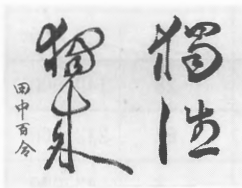 獨往
獨來
田中百令